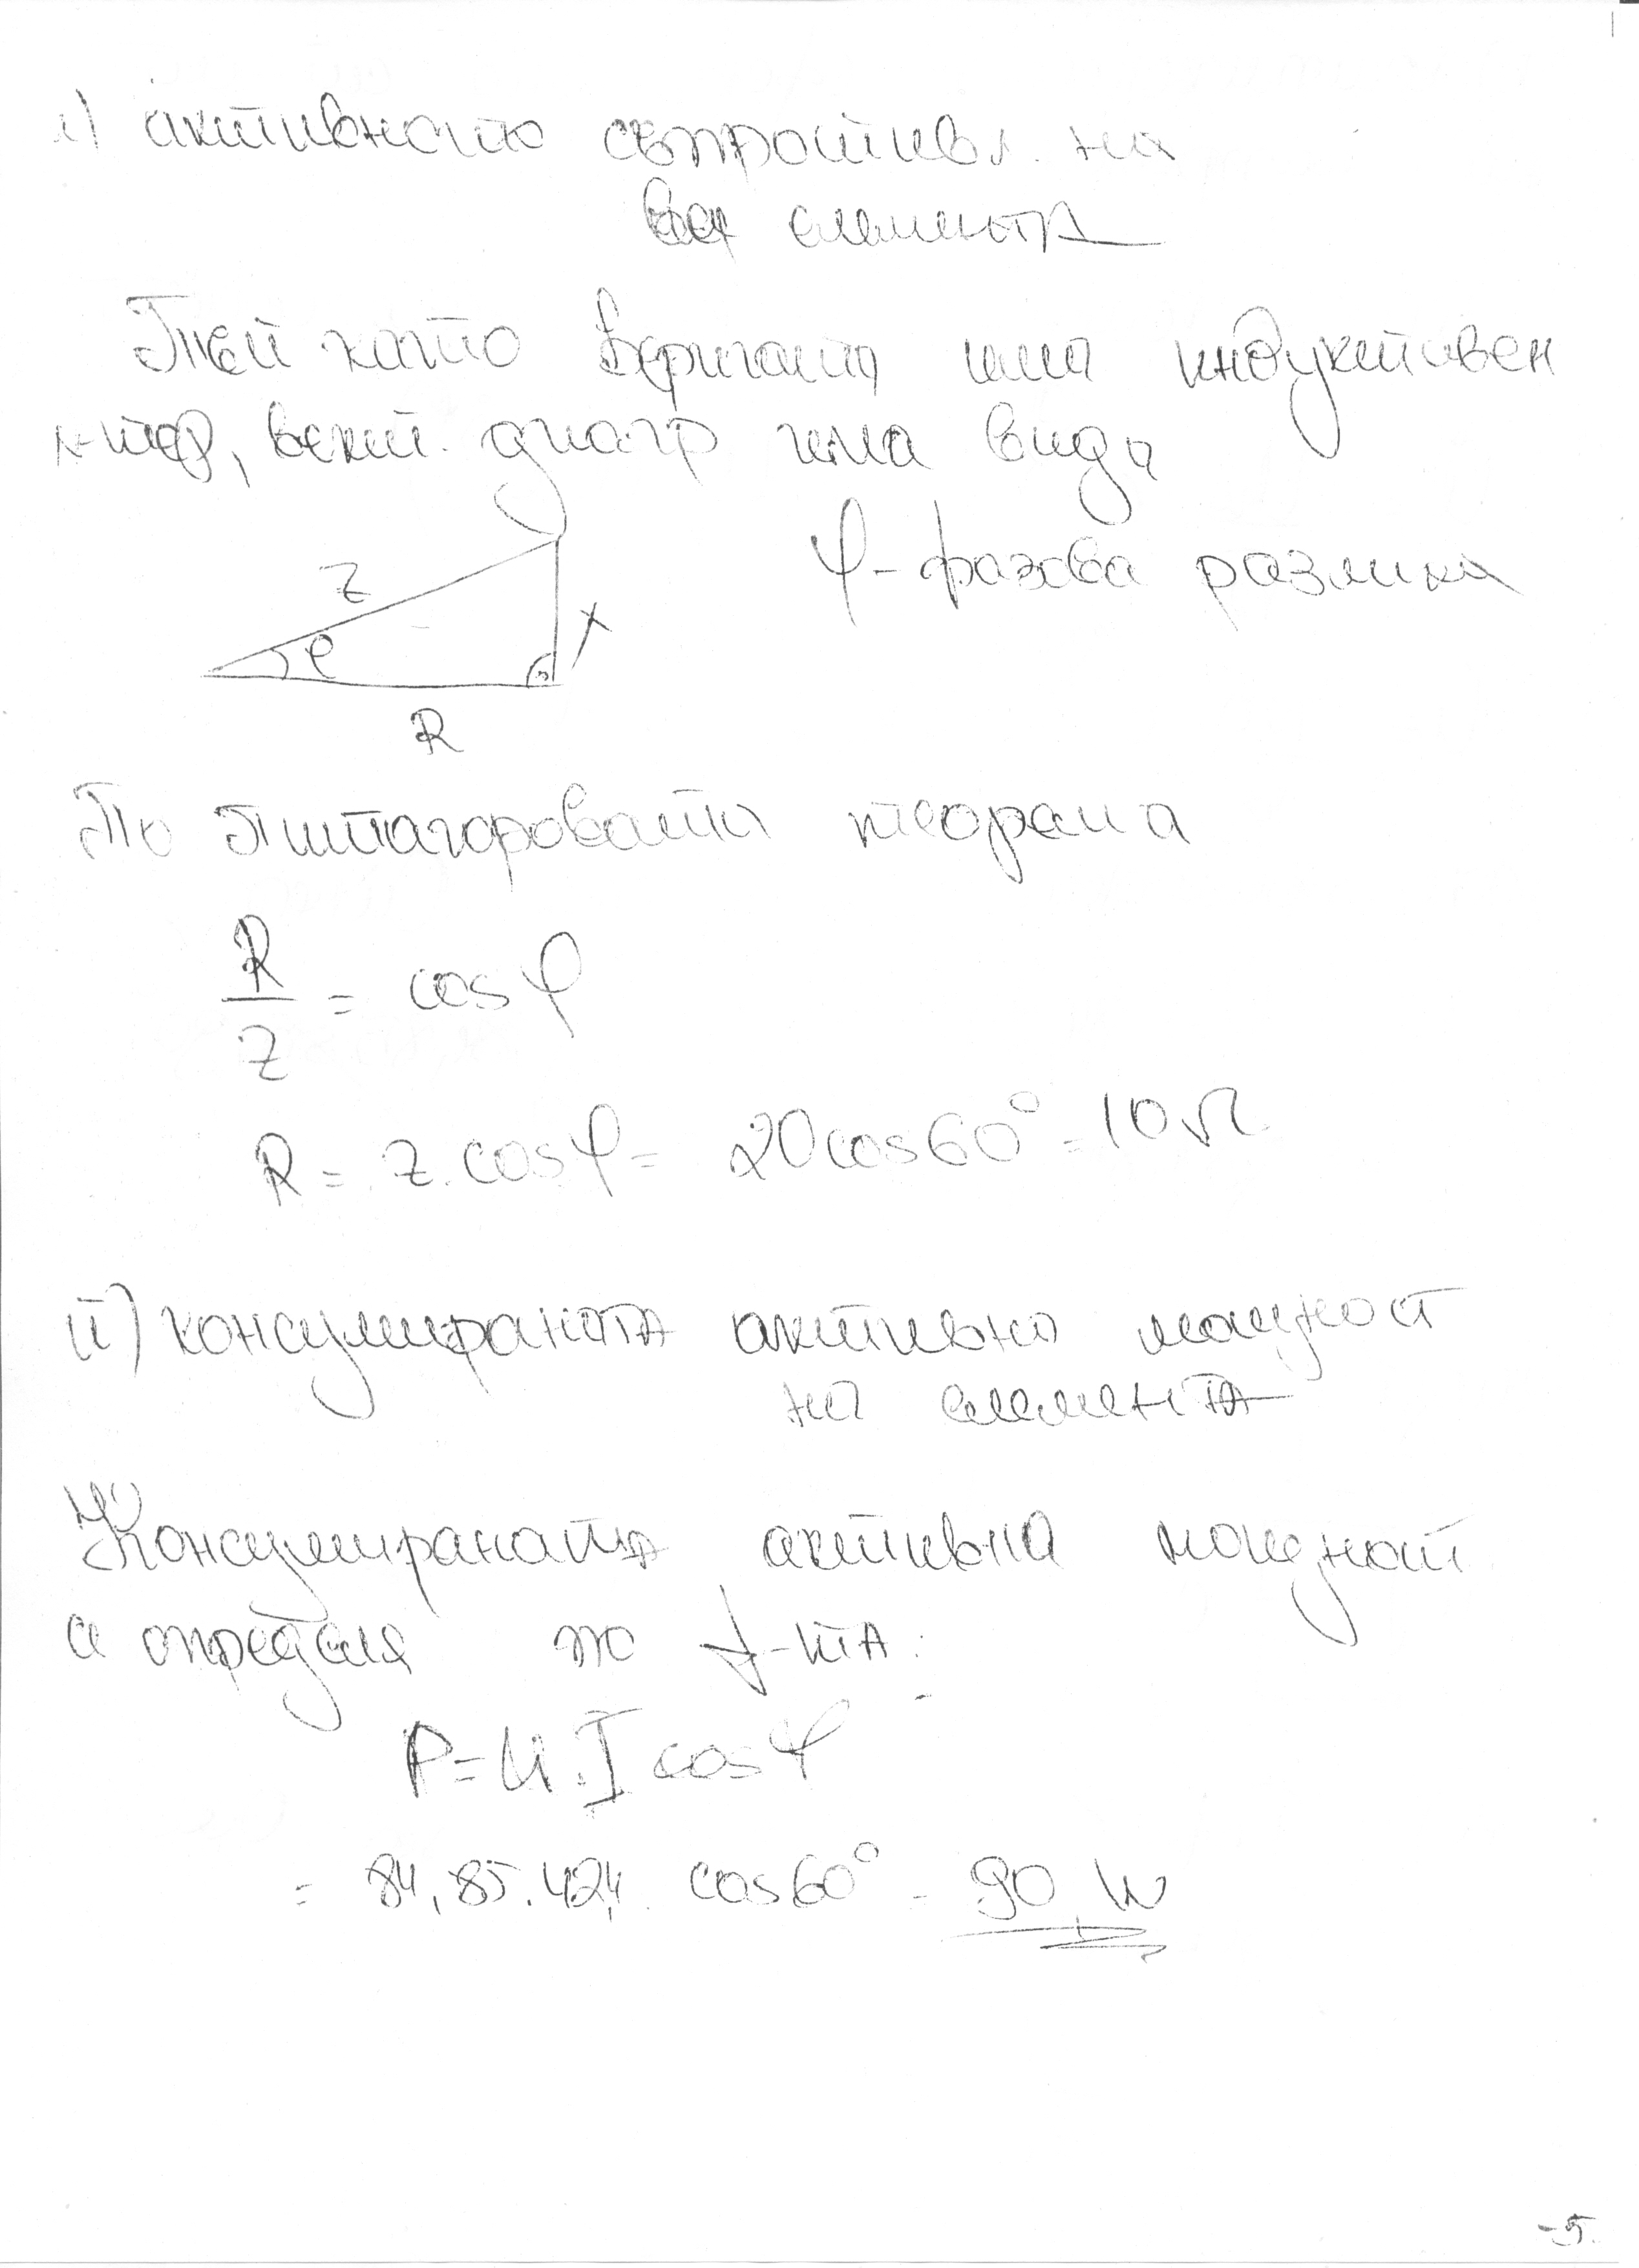 i) активното съпротивл. на
елемента
Тъй като веригата има индуктивен
х-тер, вект. диагр има вида
φ - фазова разлика
Z
φ
X
R
По Питагоровата теорема
R/Z = cos φ
R = Z. cos φ = 20 cos 60° = 10 Ω
ii) консумираната активна мощност
на елемента
Консумираната активна мощност
се определя по ф-та:
P = U. I cos φ
= 84,85. 4,24. cos 60° = 90 W
-5-